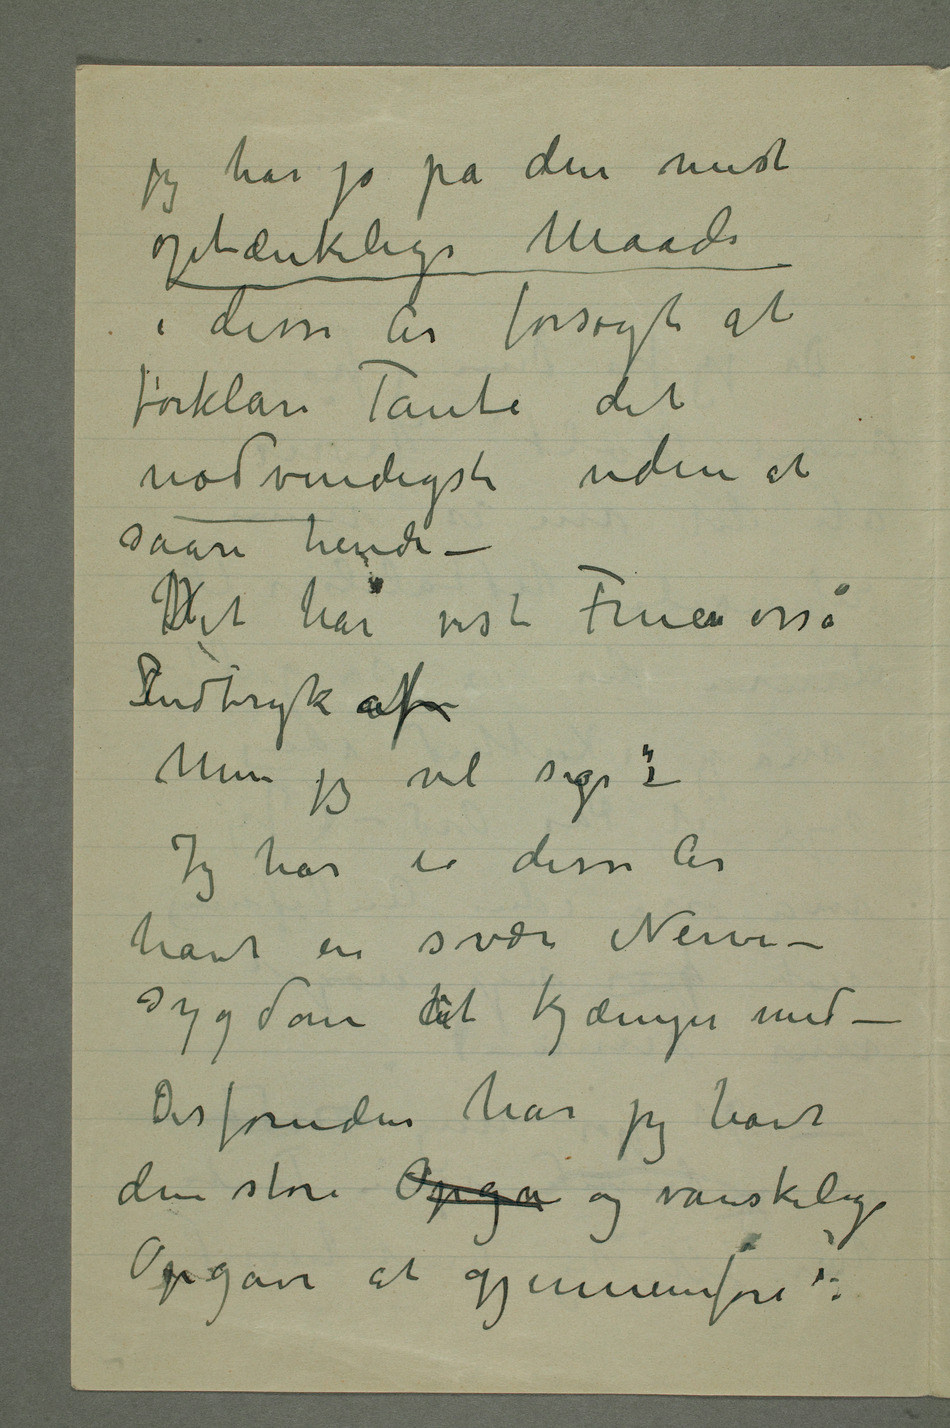 jeg har jo på den mest
optænkelige Maade
i disse år forsøgt at
forklare Tante det
nødvendigste uden at
saare hende –
Det har vist Fruen osså
Indtryk af
Men jeg vil sige: –
Jeg har i disse År
havt en svær Nerve–
sygdom at kjæmpe med –
Desforuden har jeg havt
den store Opga og vanskelige
Opgave at gjennemføre: